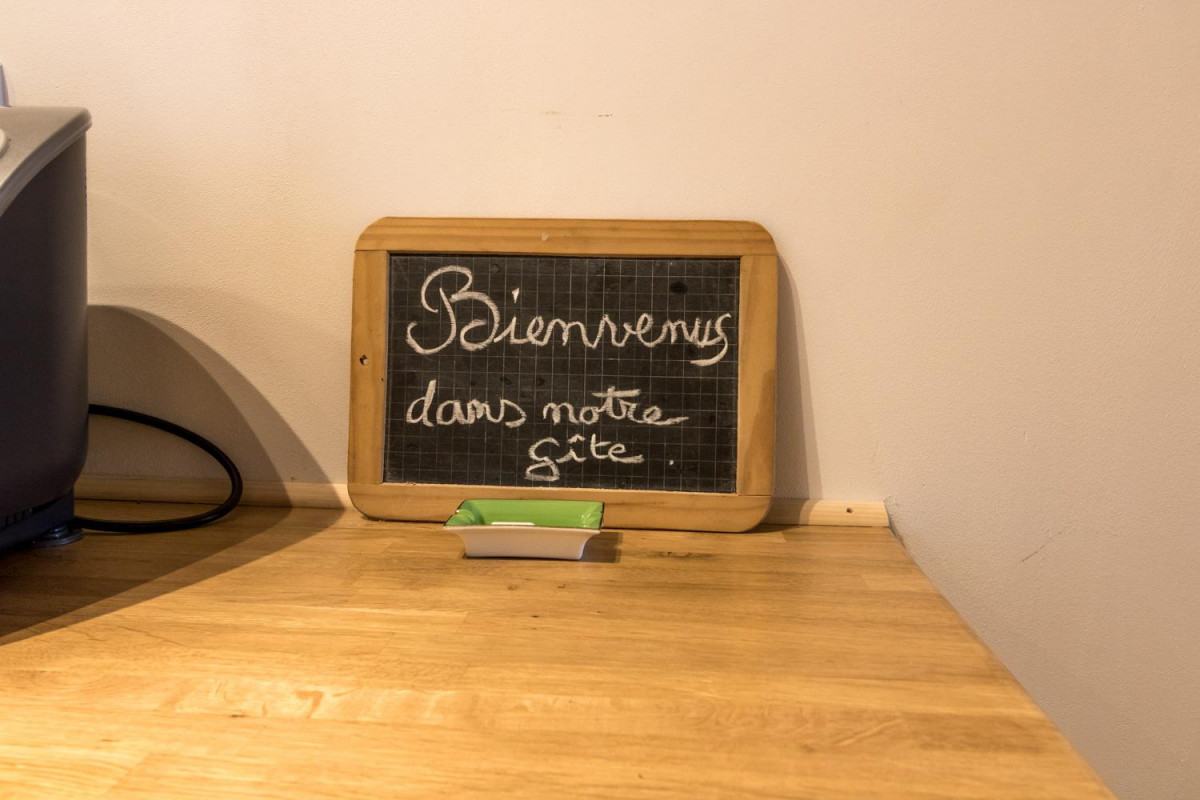 Bienvenus
dans notre
gîte.